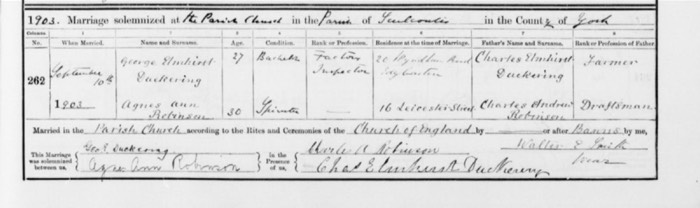 1903. Marriage solemnized at the Parish Church in the Parish of in the County of York
Columns 1 2 3 4 5 6 7 8
No. When Married. Name and Surname. Age. Condition. Rank or Profession. Residence at the time of Marriage. Father's Name and Surname. Rank or Profession of Father
262 September 10th 1903 George Elmhirst Duckering 27 Bachelor Factory Inspector 20 Charles Elmhirst Duckering Farmer
Agnes Ann Robinson 30 Spinster — 16 Leicester Street Charles Andrew Robinson Draftsman
Married in the Parish Church according to the Rites and Ceremonies of the Church of England by or after Banns by me,
This Marriage was solemnized between us, Geo E Duckering Agnes Ann Robinson in the Presence of us, A Robinson Chas Elmhirst Duckering Walter E Smith